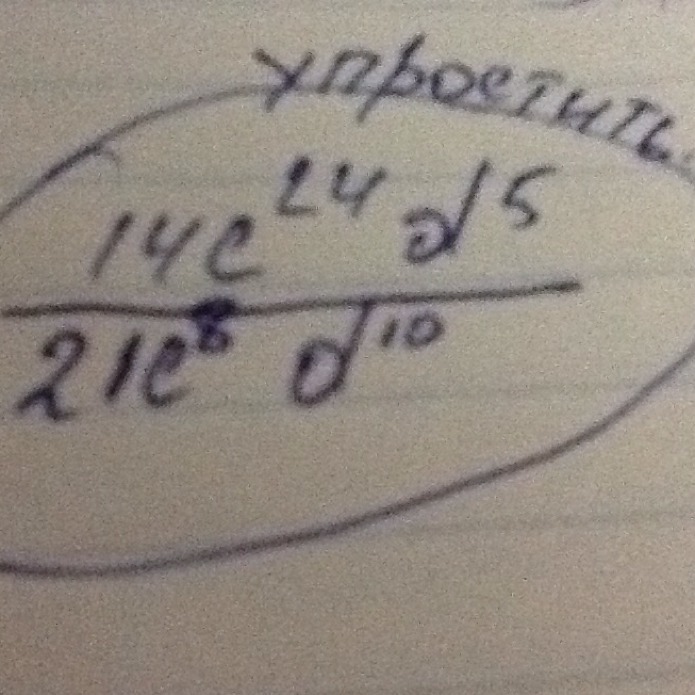 упростить.
14c²⁴ d⁵
21c⁸ d¹⁰